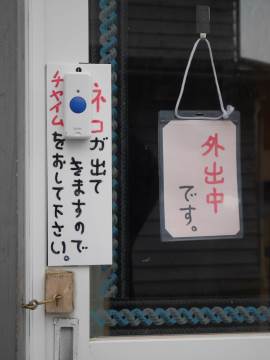 外出中
です。
ネコが出て
きますので
チャイムをおして下さい。